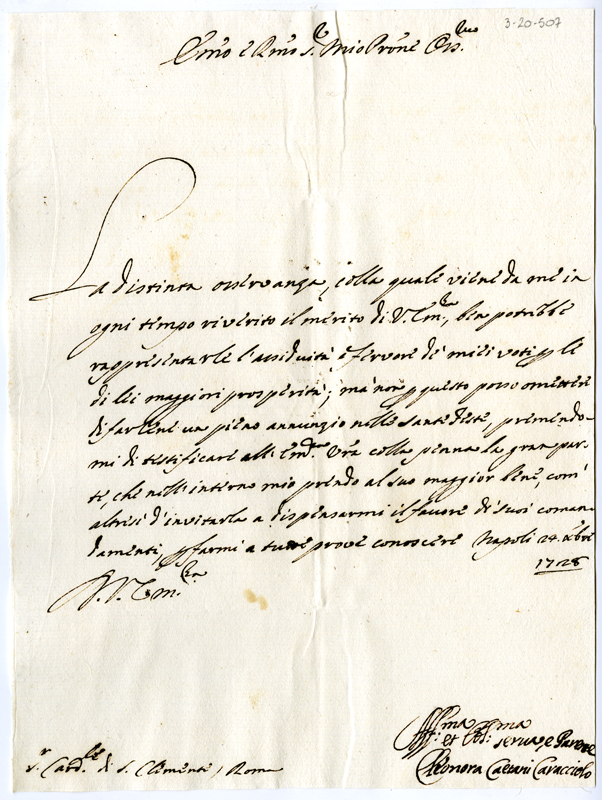 3-20-507
Em̃o e Rm̃o S.r Mio Prõne Oss.mo
La distinta osservanza, colla quale viene da me in
ogni tempo riverito il merito di V. Em.za, ben potrebbe
rappresentarle l'assiduità, e fervore de' miei voti p le
di lei maggiori prosperità; mà non p questo posso omettere
di farlene un pieno annunzio nelle Sante Feste, premendo-
mi di testificare all' Em.za Vr̃a colla penna la gran par-
te, che nell'interno mio prendo al suo maggior bene, com'
altresì d'invitarla a dispensarmi il favore de' suoi coman-
damenti, p farmi a tutte prove conoscere Napoli 24. Xbre
1728
D. V. Em.za
Aff.ma et Obb.ma
serva, e Parente
Eleonora Caetani Caracciolo
S.r Card.le di S. Clemente, Roma